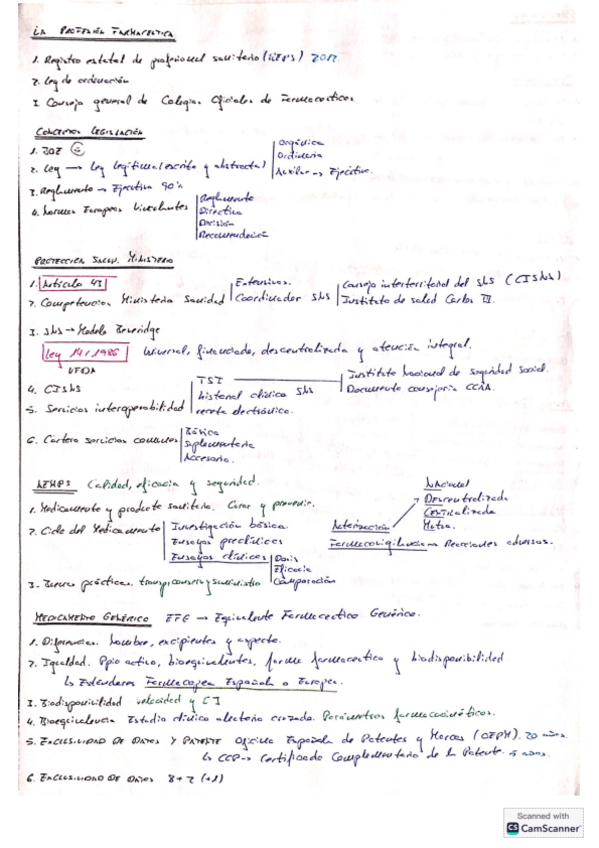 LA PROFESIÓN FARMACEUTICA
1. Registro estatal de profesional sanitario (REPS) 2012
2. Ley de ordenación
3. Consejo general de Colegios Oficiales de Farmaceuticos
CONCEPTOS LEGISLACIÓN
1. BOE
Orgánica
Ordinaria
2. Ley → Ley legítima (escrita y abstracta)
Auxiliar → Ejecutivo.
3. Reglamento → Ejecutivo 90%
4. Normas Europeas Vinculantes
Reglamento
Directiva
Decisión
Recomendación
PROTECCIÓN MINISTERIO
1. Artículo 43
Extensivos.
Consejo interterritorial del SNS (CISNS)
2. Competencias Ministerio Sanidad
Coordinador SNS
Instituto de salud Carlos III.
3. SNS → Modelo Beveridge
Ley 14/1986
Universal, financiado, descentralizada y atención integral.
4. CISNS
TSI
Instituto Nacional de Seguridad Social.
Documento consejería CCAA.
5. Servicios interoperabilidad
historial clínico SNS
receta electrónica.
6. Cartera servicios comunes
Básica
Suplementaria
Accesoria.
AEMPS Calidad, eficacia y seguridad.
1. Medicamento y producto sanitario. Curar y prevenir.
NACIONAL
Descentralizada
Centralizada
Mutua.
2. Ciclo del Medicamento
Investigación básica
Ensayos preclínicos
Ensayos clínicos
Dosis
Eficacia
Comparación
Autorización
Farmacovigilancia → Reacciones adversas.
3. Buenas prácticas. transp, conserv y suministro
MEDICAMENTO GENÉRICO EFG → Equivalente Farmaceutico Genérico.
1. Diferencias. Nombre, excipientes y aspecto.
2. Igualdad. Ppio activo, bioequivalentes, forma farmaceutica y biodisponibilidad
↳ Estandares Farmacopea Española o Europea.
3. Biodisponibilidad velocidad y
4. Bioequivalencia Estudio clínico aleatorio cruzado. Parámetros farmacocinéticos.
5. EXCLUSIVIDAD DE DATOS Y PATENTE Oficina Española de Patentes y Marcas (OEPM). 20 años.
↳ CCP → Certificado Complementario de la Patente. 5 años.
6. EXCLUSIVIDAD DE DATOS 8+2 (+1)
Scanned with
CS CamScanner